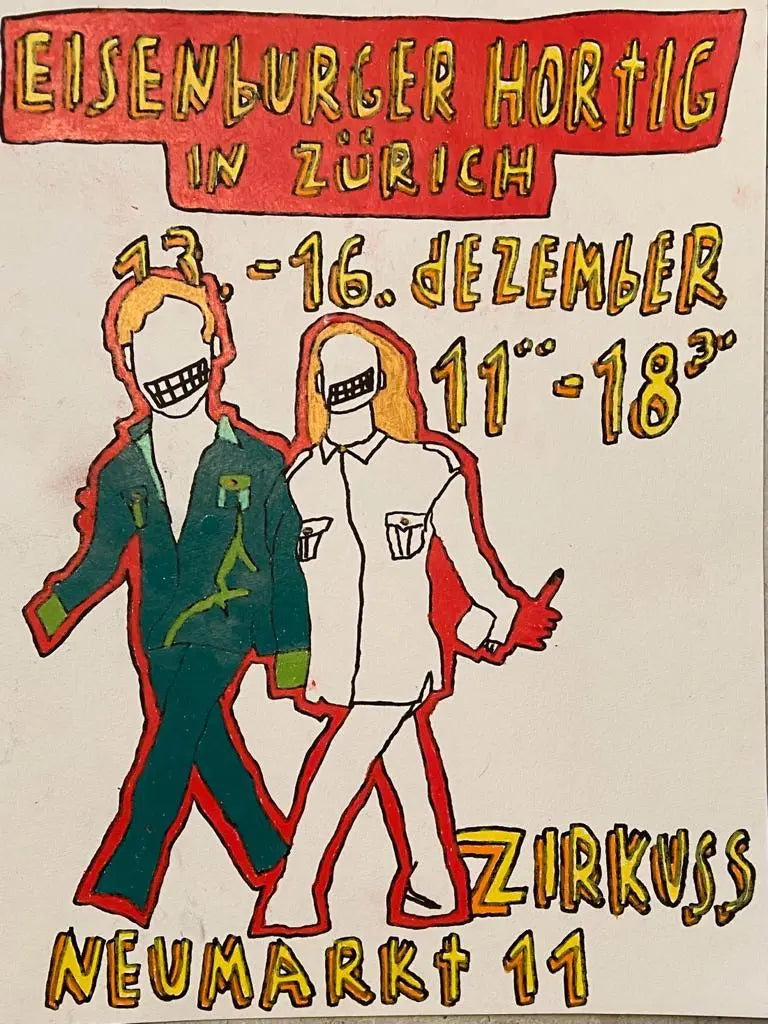 EISENbURGER HORtIG
IN ZÜRICH
13. -16. dEZEMbER
11°°-18³°
ZIRKUSS
NEUMARKt 11